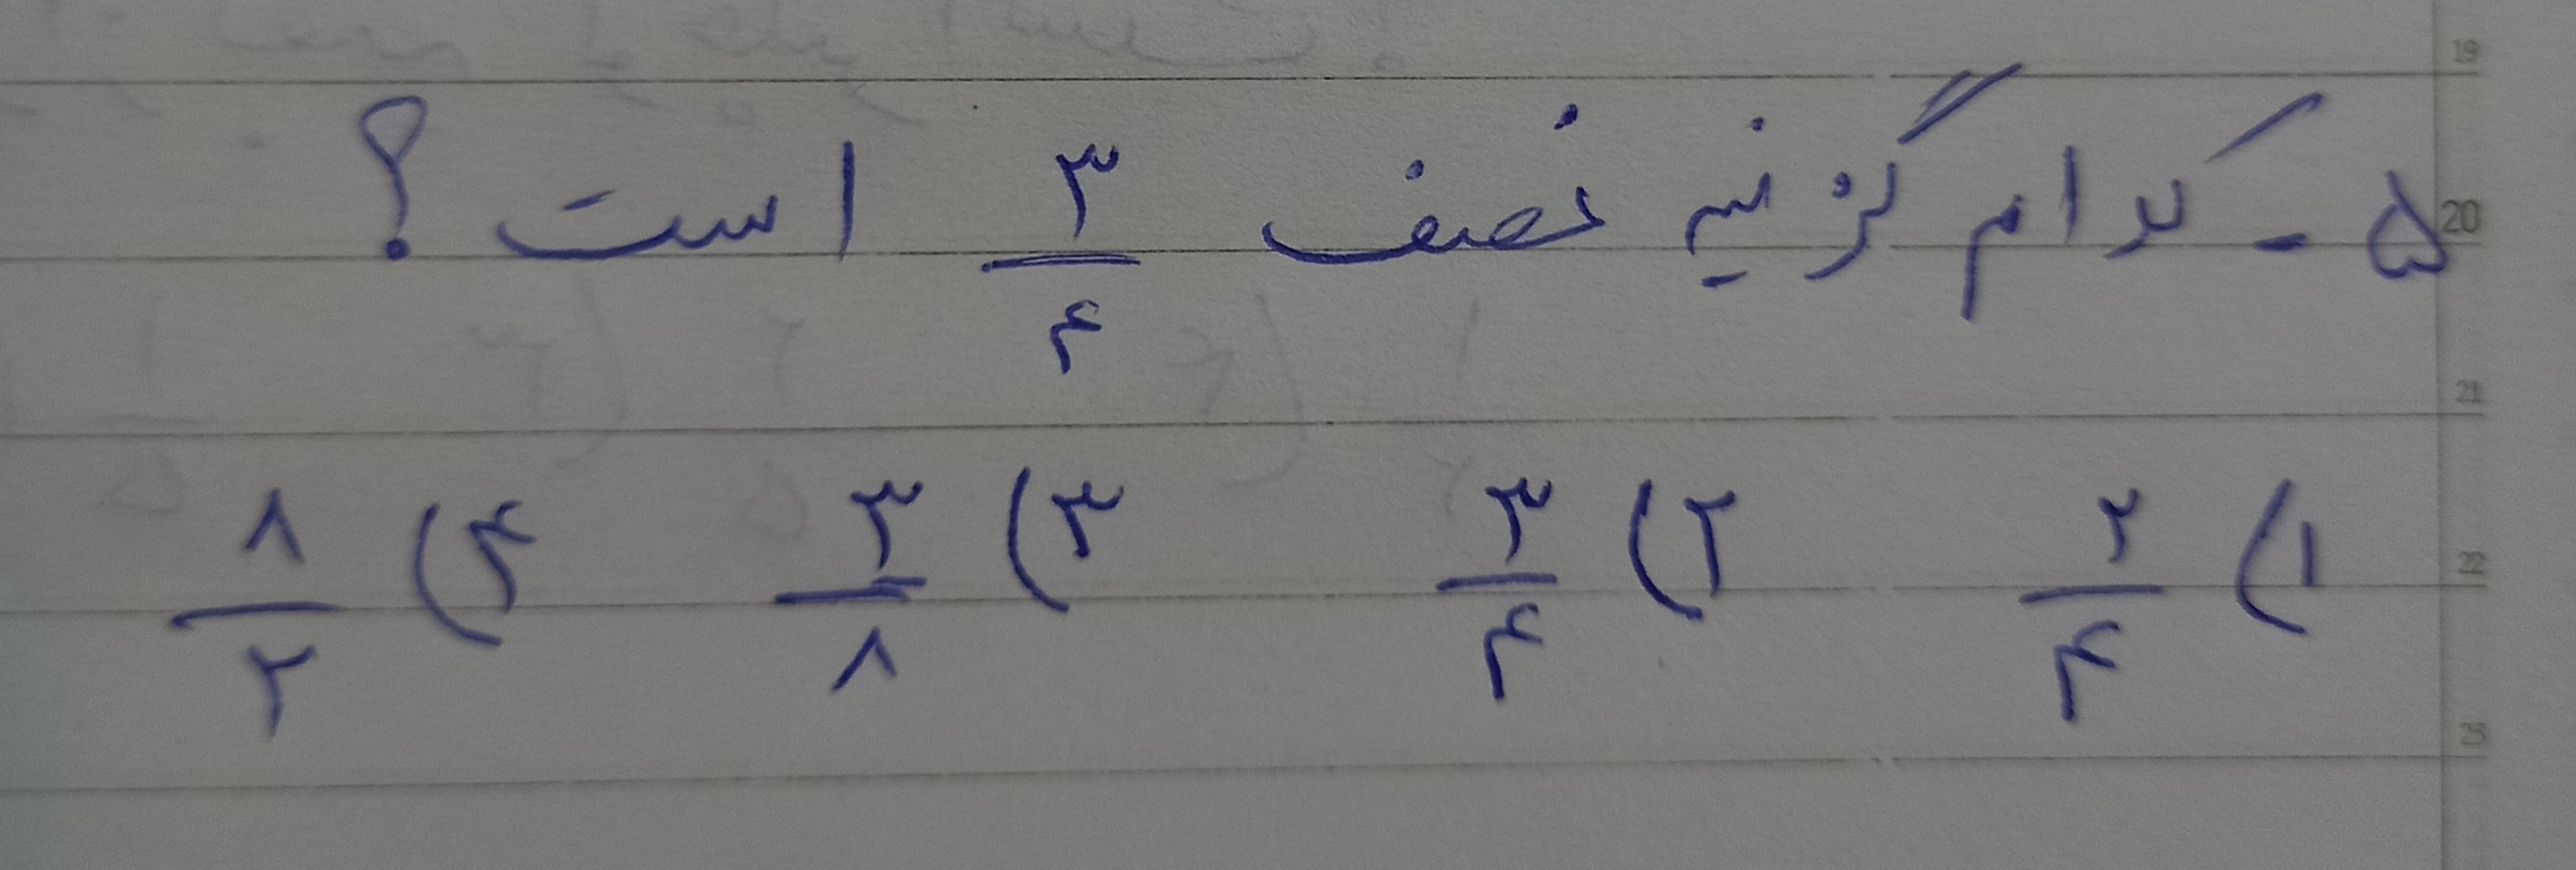 ۵ - کدام گزینه نصف ۳/۴ است ؟
۱) ۲/۴ ۲) ۳/۴ ۳) ۳/۸ ۴) ۸/۲
19
20
21
22
23